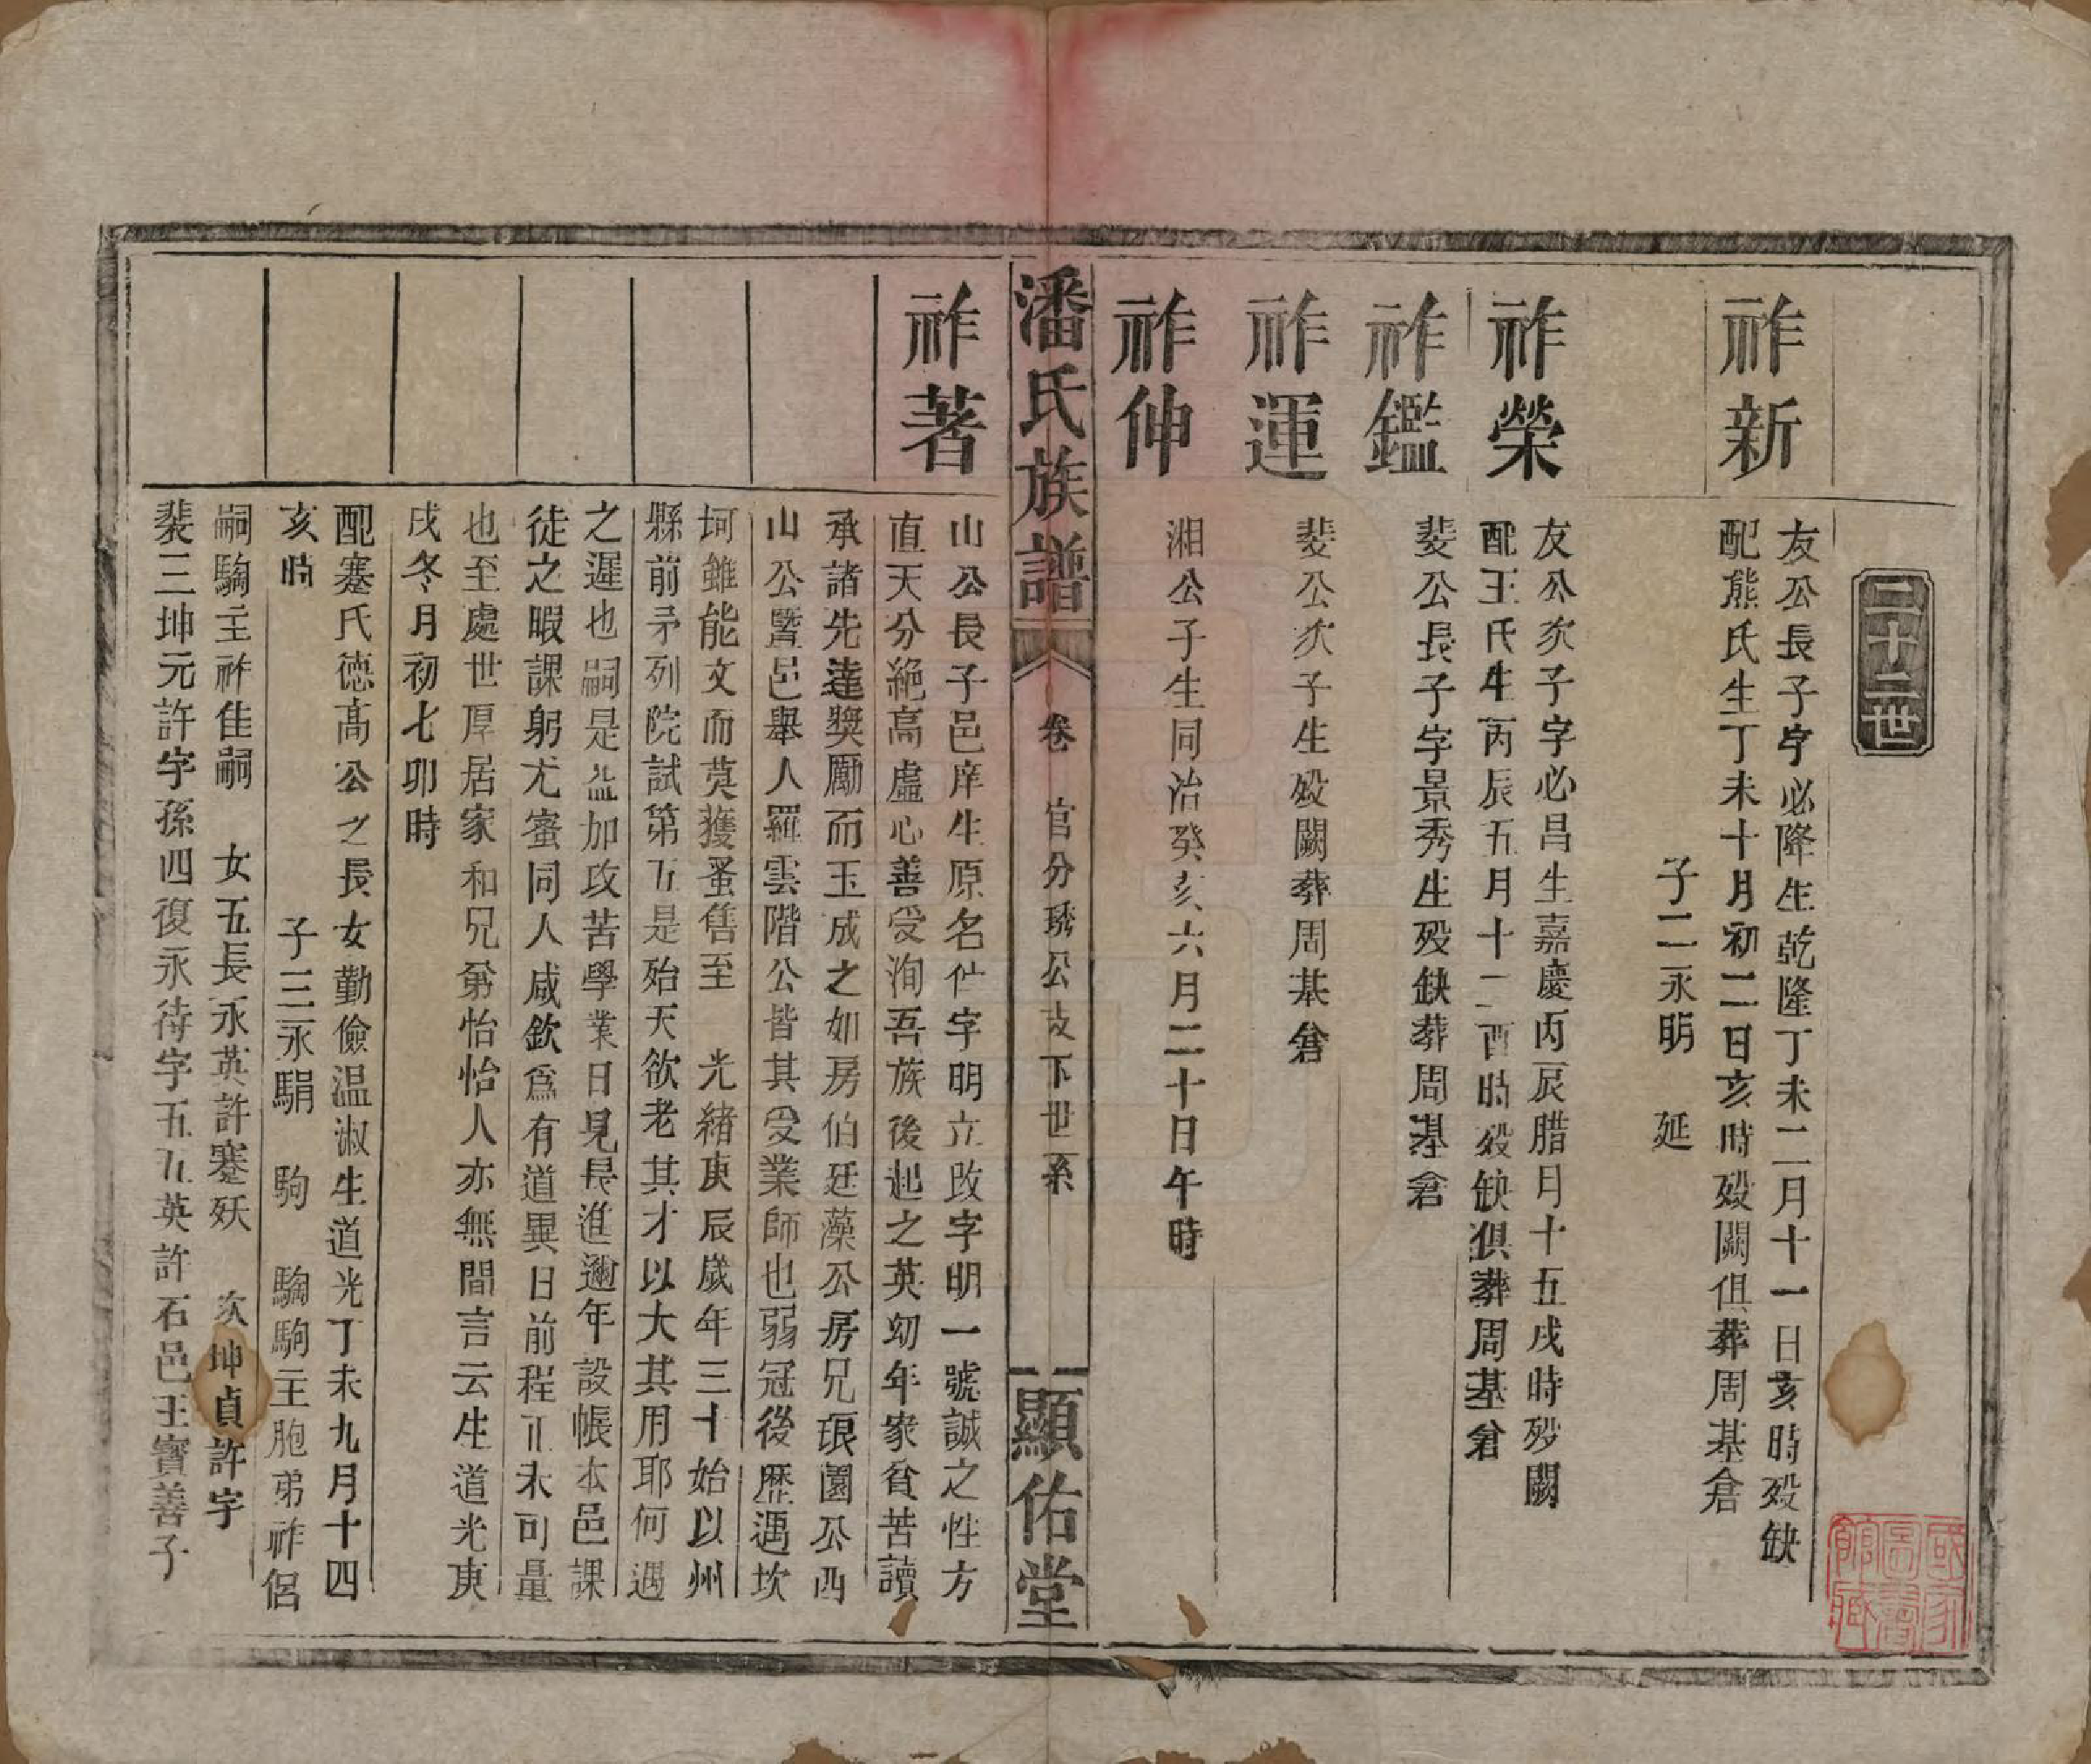 二十二世
祚新
友公長子字必降生乾隆丁未二月十一日亥時殁缺
配熊氏生丁未十月初二日亥時殁闕俱葬周基倉
子二永明　延
祚榮
友公次子字必昌生嘉慶丙辰腊月十五戌時殁闕
配王氏生丙辰五月十二酉時殁缺俱葬周基倉
祚鑑
斐公長子字景秀生殁缺葬周基倉
祚運
斐公次子生殁闕葬周基倉
祚伸
湘公子生同治癸亥六月二十日午時
潘氏族譜　卷　官分琇公支下世系　顯佑堂
祚著
山公長子邑庠生原名伫字明立改字明一號誠之性方
直天分絶高虛心善受洵吾族後起之英幼年家貧苦讀
承諸先達獎勵而玉成之如房伯廷藻公房兄琅園公西
山公暨邑舉人羅雲階公皆其受業師也弱冠後歷遇坎
坷雖能文而莫獲蚤售至　光緒庚辰歲年三十始以州
縣前矛列院試第五是殆天欲老其才以大其用耶何遇
之遲也嗣是益加攻苦學業日見長進邇年設帳本邑課
徒之暇課躬尤蜜同人咸欽爲有道異日前程正未可量
也至處世厚居家和兄弟怡怡人亦無間言云生道光庚
戌冬月初七卯時
配蹇氏德高公之長女勤儉温淑生道光丁未九月十四
亥時　子三永騆　駒　騊駒主胞弟祚侶
嗣騊主祚佳嗣　女五長永英許蹇妖　次坤貞許字
裴三坤元許字孫四復永待字五五英許石邑王寶善子
國家圖書館藏